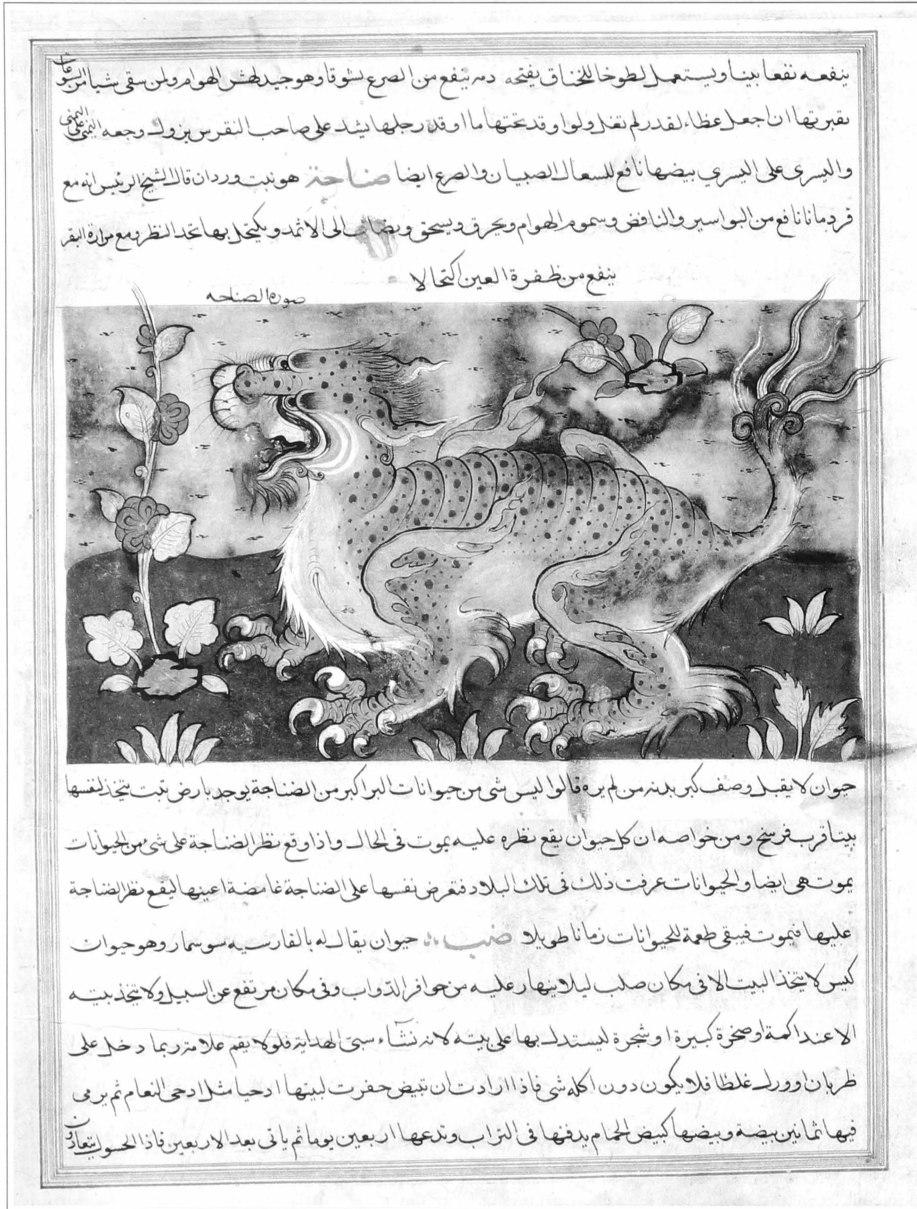 ينفعه نفعا بينا ويستعمل لطوخا للخناق يفتحه دمه ينفع من الصرع نشوقا وهو جيد لهش الهوام ولمن سقى شيا من السموم
ان اجعل عظاء لقدر لم تغل ولو اوقد تحتها ما اوقد رجلها يشد على صاحب النقرس يزول وجعه اليمنى على اليمنى
واليسرى على اليسرى بيضها نافع للسعال الصبيان والصرع ايضا ضناجة هو نبت وردان قال الشيخ الرئيس انه مع
قردمانا نافع من البواسير والنافض وسموم الهوام ويحرق ويسحق ويضاف الى الاثمد ويكتحل بها تحد النظر ومع مرارة البقر
ينفع من ظفرة العين اكتحالا
صورة الضناجه
حيوان لا يقبل وصف كبر بدنه من لم يره قالوا ليس شى من حيوانات البر اكبر من الضناجة يوجد بارض تبت تتخذ لنفسها
بيتا قرب فرسخ ومن خواصه ان كل حيوان يقع نظره عليه يموت فى الحال واذا وقع نظر الضناجة على شى من الحيوانات
يموت هى ايضا والحيوانات عرفت ذلك فى تلك البلاد فتعرض نفسها على الضناجة غامضة اعينها ليقع نظر الضناجة
عليها فيموت فيبقى طعمة للحيوانات زمانا طويلا ضب حيوان يقال له بالفارسيه سوسمار وهو حيوان
كيس لا يتخذ البيت الا فى مكان صلب ليلا ينهار عليه من حوافر الدواب وفى مكان مرتفع عن السبيل ولا يتخذ بيته
الا عند اكمة او صخرة كبيرة او شجرة ليستدل بها على بيته لانه نشّاء سيئ الهداية فلو لا يقم علامة ربما دخل على
ظربان او ورل غلطا فلا يكون دون اكله شى فاذا ارادت ان تبيض حفرت لبيتها ادحيا مثل ادحى النعام ثم يرمى
فيها ثمانين بيضة وبيضها كبيض الحمام يدفنها فى التراب وتدعها اربعين يوما ثم ياتى بعد الاربعين فاذا الحسول يتعادون